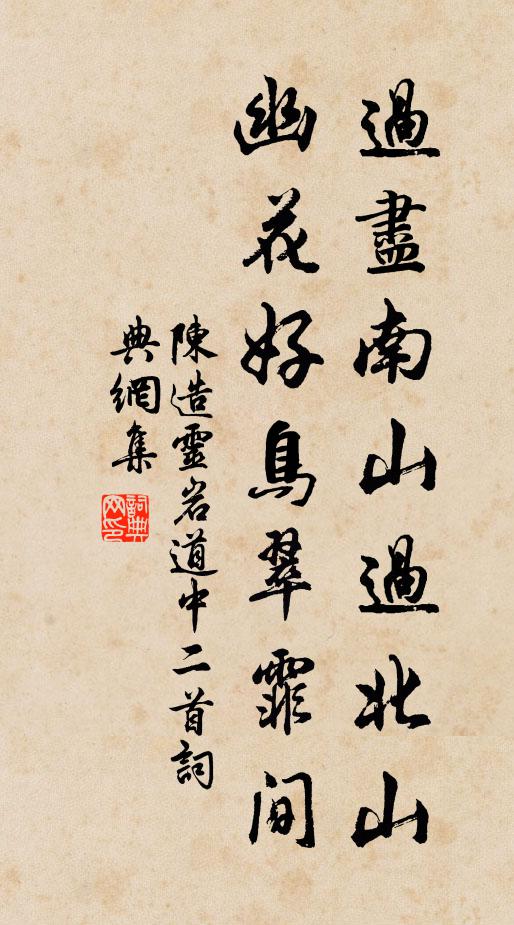 過盡南山過北山
幽花好鳥翠霏间
陳造靈岩道中二首詞
典網集
詞典網印